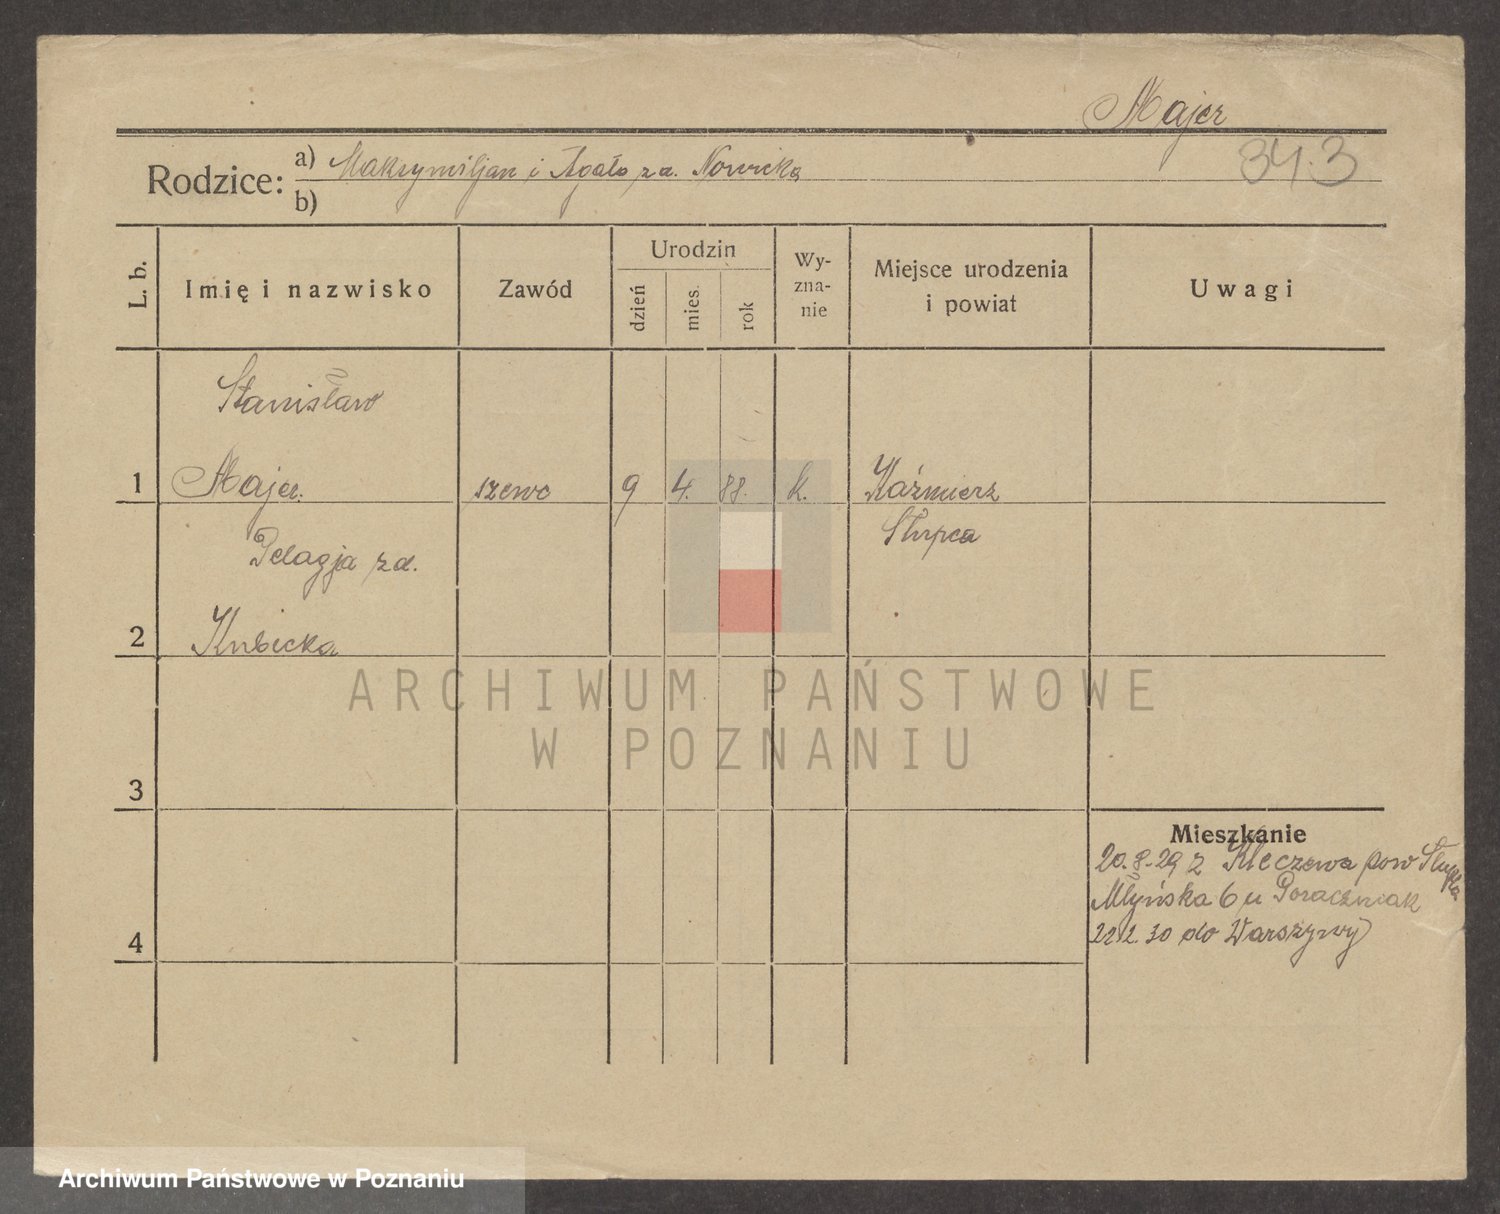 Majer
34.3
Rodzice: a) Maksymiljan i Agata z d. Nowicka
b)
L. b.
Imię i nazwisko
Zawód
Urodzin
dzień
mies.
rok
Wy-
zna-
nie
Miejsce urodzenia
i powiat
Uwagi
Stanisław
1 Majer. szewc 9 4. 88. k. Kaźmierz
Słupca
Pelagja z d.
2 Kubicka
ARCHIWUM PAŃSTWOWE
W POZNANIU
3
Mieszkanie
20.8.29 z Kleczewa pow Słupca
Młyńska 6 u Poraczniak
4
22.2.30 do Warszywy
Archiwum Państwowe w Poznaniu